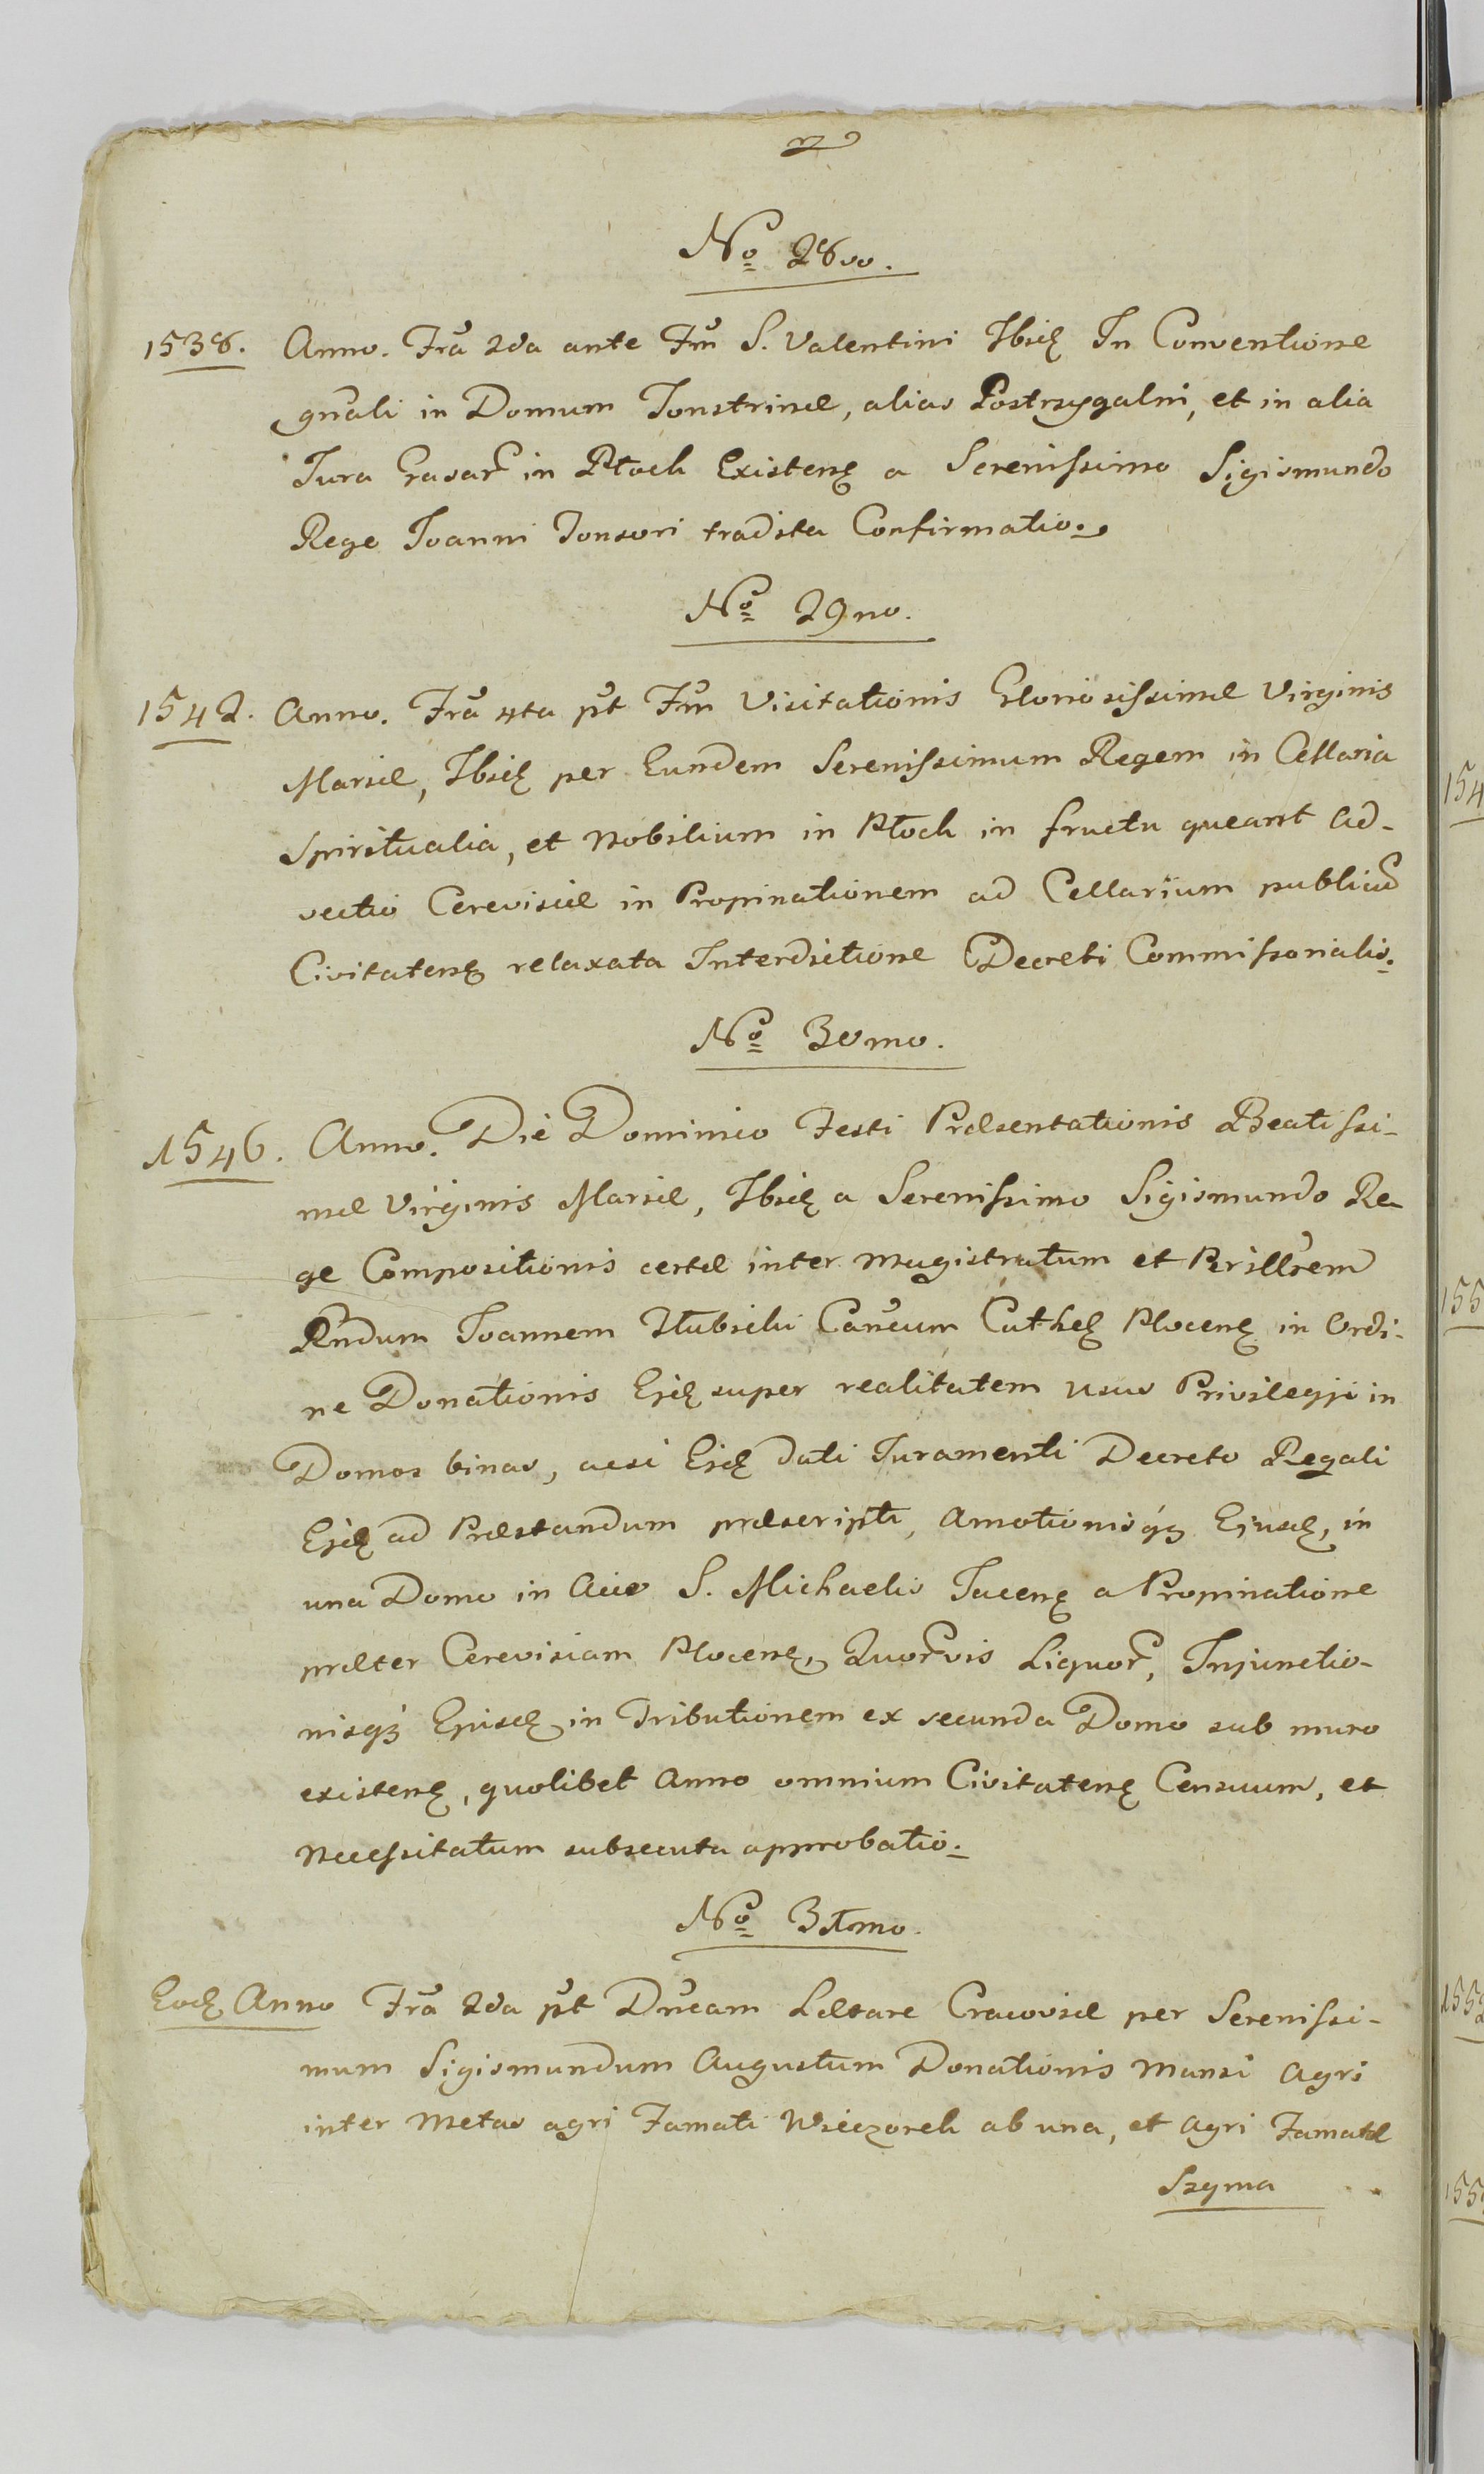 No 28vo.
1538. Anno. Fra 2da ante Fm S. Valentini Ibid In Conventione
gnali in Domum Tonstrinæ, alias Postrzygalni, et in alia
Jura Casar in Płock Existen a Serenissimo Sigismundo
Rege Joanni Tonsori tradita Confirmatio.
No 29no.
1542. Anno. Fra 4ta pt Fm Visitationis Gloriosissimæ Virginis
Mariæ, Ibid per Eundem Serenissimum Regem in Cellaria
Spiritualia, et Nobilium in Płock in fructu queant Ad-
vectio Cerevisiæ in Propinationem ad Cellarium publicu
Civitaten relaxata Interdictione Decreti Commissorialis.
No 30mo.
1546. Anno. Die Dominico Festi Præsentationis Beatissi-
mæ Virginis Mariæ, Ibid a Serenissimo Sigismundo Re-
ge Compositionis certæ inter Magistratum et Perillrem
Rndum Joannem Cancum Cathed Plocen in Ordi-
ne Donationis Ejd super realitatem usus Privilegji in
Domos binas, acsi Ejd dati Juramenti Decreto Regali
Ejd ad Præstandum præscripti, Amotionisq Ejusd, in
una Domo in S. Michaelis Jacen a Propinatione
præter Cerevisiam Plocen, Quorvis Liquor, Injunctio-
nisq in Tributionem ex secunda Domo sub muro
existen, quolibet Anno omnium Civitaten Censuum, et
Necessitatum subsecuta approbatio.
No 31mo.
Eod Anno Fra 2da pt Dncam Lætare Cracoviæ per Serenissi-
mum Sigismundum Augustum Donationis Mansi Agri
inter Metas agri Famati Wieczorek ab una, et Agri Famatæ
Szyma
154
155
1552
155